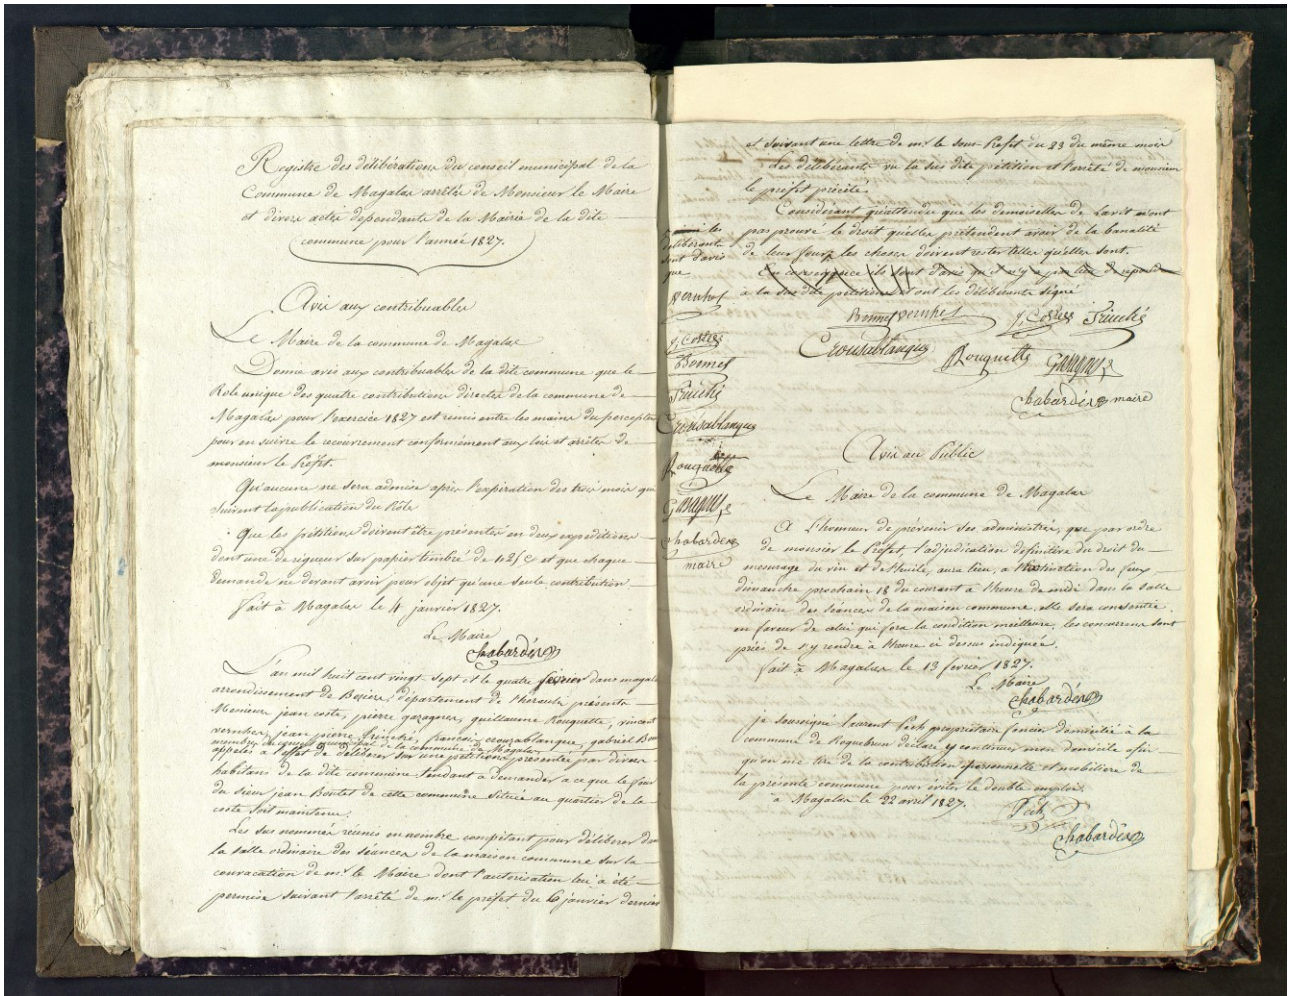 Registre des délibérations du conseil municipal de la
Commune de Magalas arrêtés de Monsieur le Maire
et divers actes dépendants de la Mairie de la dite
commune pour l'année 1827.
Avis aux contribuables
Le Maire de la commune de Magalas
Donne avis aux contribuables de la dite commune que le
Role unique des quatre contributions directes de la commune de
Magalas pour l'exercice 1827 est remis entre les mains du percepteur
pour en suivre le recouvrement conformément aux lois et arrêtés de
monsieur le Préfet.
Qu'aucune ne sera admise après l'expiration des trois mois qui
suivent la publication du Rôle
Que les pétitions doivent être présentées en deux expéditions
dont une de rigueur sur papier timbré de 42/c et que chaque
demande ne devant avoir pour objet qu'une seule contribution
fait à Magalas le 4 janvier 1827.
Le Maire
Chabardés
L'an mil huit cent vingt-sept et le quatre février dans magalas
arrondisement de Beziers, département de l'herault, présents
Messieurs jean coste, pierre garagnes, guillaume Rouquette, vincent
vernhes, jean pierre Trinché, francois crousablanque, gabriel Bon
membres du conseil municipal de la commune de Magalas
appelés à l'effet de délibérer sur une pétition présentée par divers
habitans de la dite commune tendant à demander a ce que le four
du sieur jean Boutet de cette commune située au quartier de la
coste soit maintenu.
Les sus nommés réunis en nombre compétant pour délibérer dans
la salle ordinaire des séances de la maison commune sur la
convacation de mr. le Maire dont l'autorisation lui a été
permise suivant l'arrêté de mr. le préfet du 6 janvier dernier
et suivant une lettre de mr. le sous-Préfet du 23 du même mois
Les délibérants vu la sus dite pétition et l'arrêté de monsieur
le préfet précité.
Considérant qu'attendu que les demoiselles de Larst n'ont
pas prouvé le droit qu'elles prétendent avoir de la banalité
de leur four, les choses doivent rester telles qu'elles sont.
En conséquence ils sont d'avis qu'il n'y a pas lieu de répondre
à la sus dite pétition et ont les délibérants signé
Bonnes vernhes J, Costes Trinché
Crousablanque Rouquette Garagnes,
Chabardés maire
les
délibérants
sont d'avis
que
Vernhes
J, Costes
Bonnes
Trinché
Crousablanque
Rouquette
Garagnes,
Chabardés
maire
Avis au Public
Le Maire de la commune de Magalas
A l'honneur de prévenir ses administrés, que par ordre
de monsier le Préfet l'adjudication définitive du droit du
mesurage du vin et de l'huile, aura lieu, à l'extinction des feux
dimanche prochain 18 du courant à l'heure de midi dans la salle
ordinaire des séances de la maison commune, elle sera consentie
en faveur de celui qui fera la condition meilleure, les concurrens sont
priés de s'y rendre à l'heure ci dessus indiquée.
fait à Magalas le 13 février 1827.
Le Maire
Chabardés
je soussigné Laurent Pech propriétaire foncier domicilié à la
commune de Roquebrun déclare y continuer mon domicile afin
qu'on me tire de la contribution personnelle et mobiliere de
la présente commune pour éviter le double emploi.
à Magalas le 22 avril 1827.
Pech
Chabardés